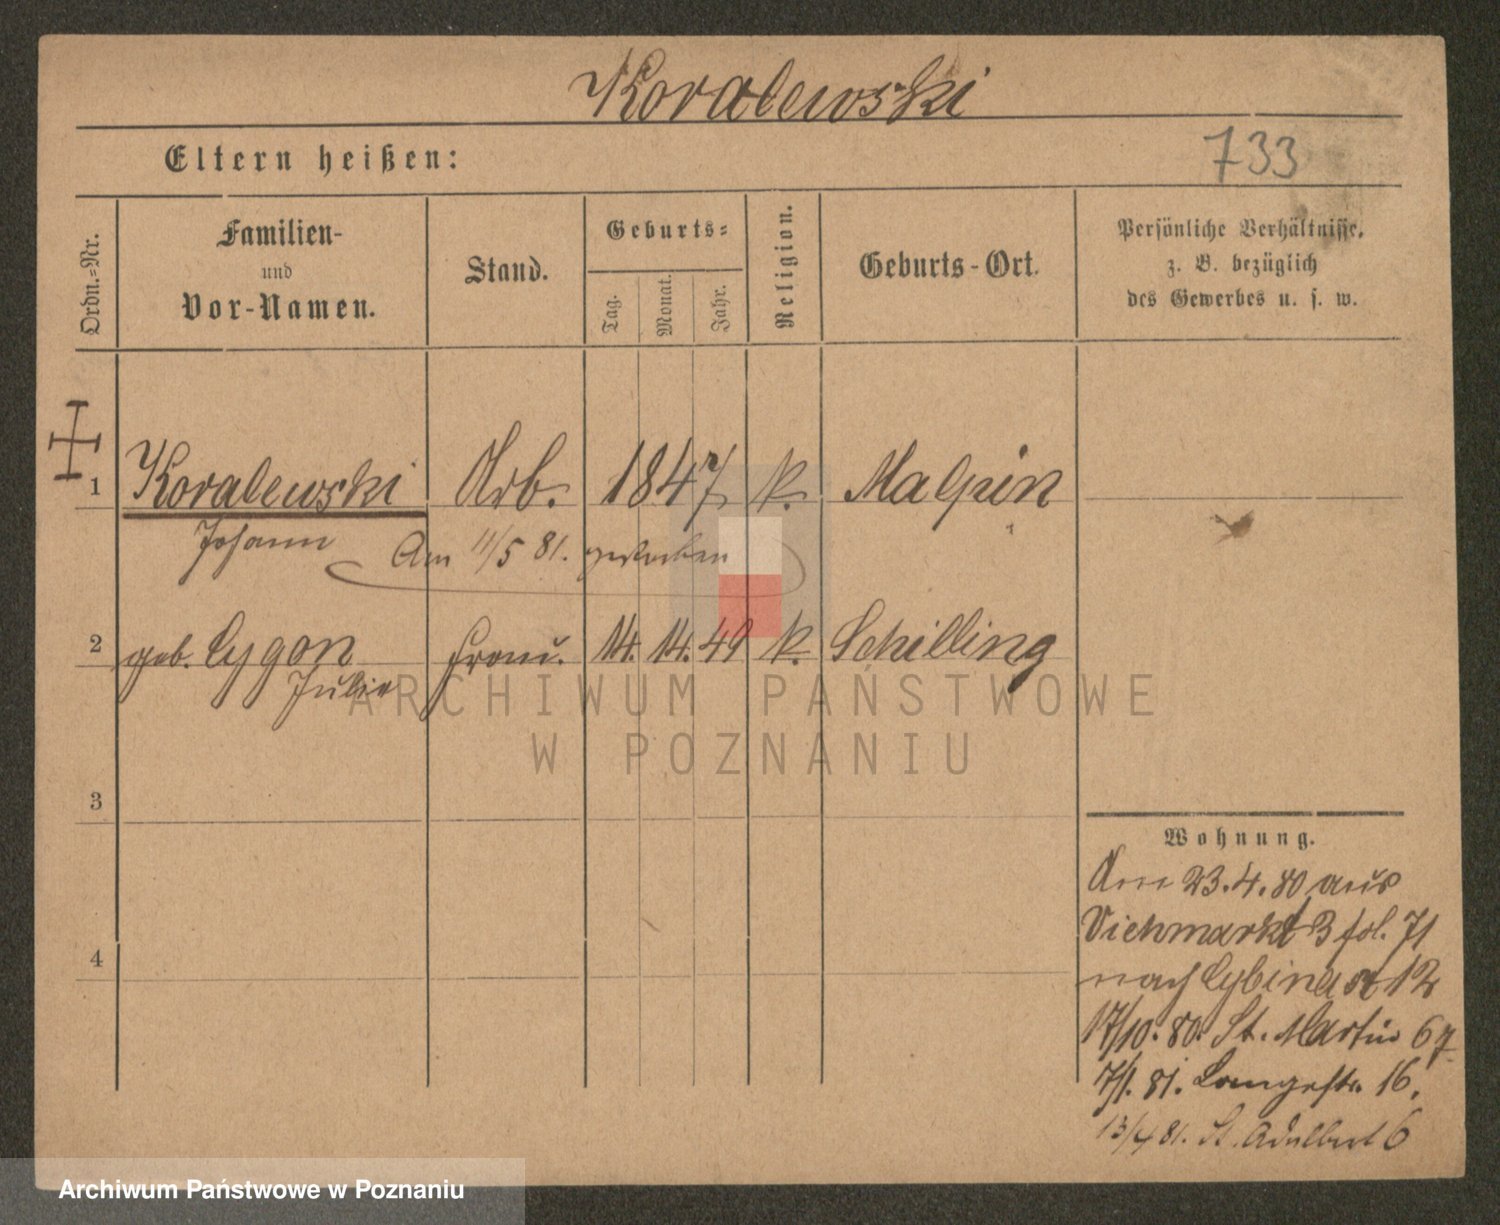 Koralewski
Eltern heißen:
733
Ordn.=Nr.
Familien-
und
Vor-Namen.
Stand.
Geburts=
Tag.
Monat.
Jahr.
Religion.
Geburts-Ort.
Persönliche Verhältnisse,
z. B. bezüglich
des Gewerbes u. s. w.
1 Koralewski Arb. 1847 k. Malpin
Johann Am 11/5 81. gestorben
2 geb. Cygon Frau. 14. 14. 49 k. Schilling
Julie
ARCHIWUM PAŃSTWOWE
W POZNANIU
3
4
Wohnung.
Am 23.4.80 aus
Viehmarkt 3 fol. 71
nach Cybina 12
17/10. 80. St. Martin 67
7/1. 81. Langestr. 16.
13/4 81. St. Adalbert 6
Archiwum Państwowe w Poznaniu